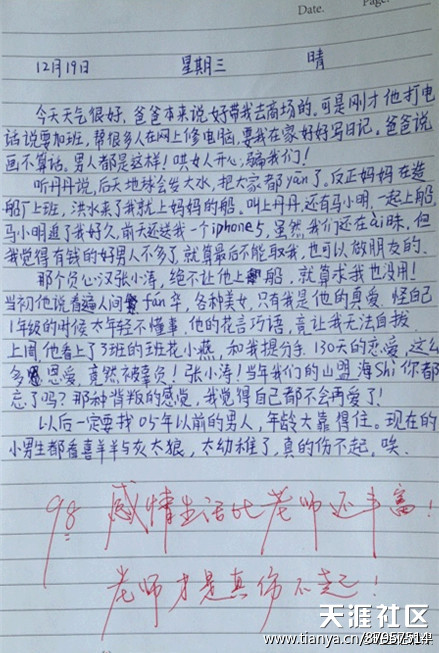 Date.
Page.
12月19日 星期三 晴
今天天气很好，爸爸本来说好带我去商场的。可是刚才他打电
话说要加班，帮很多人在网上修电脑，要我在家好好写日记。爸爸说
画不算话。男人都是这样！哄女人开心，骗我们！
听丹丹说，后天地球会发大水，把大家都yān了。反正妈妈在造
船厂上班，洪水来了我就上妈妈的船，叫上丹丹还有马小明，一起上船，
马小明追了我好久，前天还送我一个iphone5，虽然，我们还在ài昧，但
我觉得有钱的好男人不多了，就算最后不能取我，也可以做朋友的。
那个负心汉张小涛，绝不让他上船，就算求我也没用！
当初他说看遍人间fán华，各种美女，只有我是他的真爱，怪自己
1年级的时候太年轻不懂事，他的花言巧语，竟让我无法自拔
上周，他看上了3班的班花小燕，和我提分手，130天的恋爱，这么
多恩爱，竟然被辜负！张小涛！当年我们的山盟海Shi你都
忘了吗？那种背叛的感觉，我觉得自己都不会再爱了！
以后一定要找05年以前的男人，年龄大靠得住。现在的
小男生都看喜羊羊与灰太狼，太幼稚了，真的伤不起，唉。
98 感情生活比老师还丰富！
老师才是真伤不起！
天涯社区
www.tianya.cn/87957514